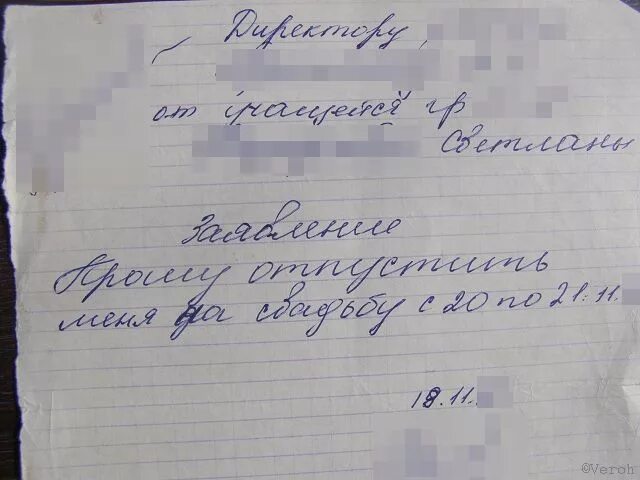 Директору
от учащейся гр
Светланы
Заявление
Прошу отпустить
меня на свадьбу с 20 по 21.11.
18.11.
©Veroh